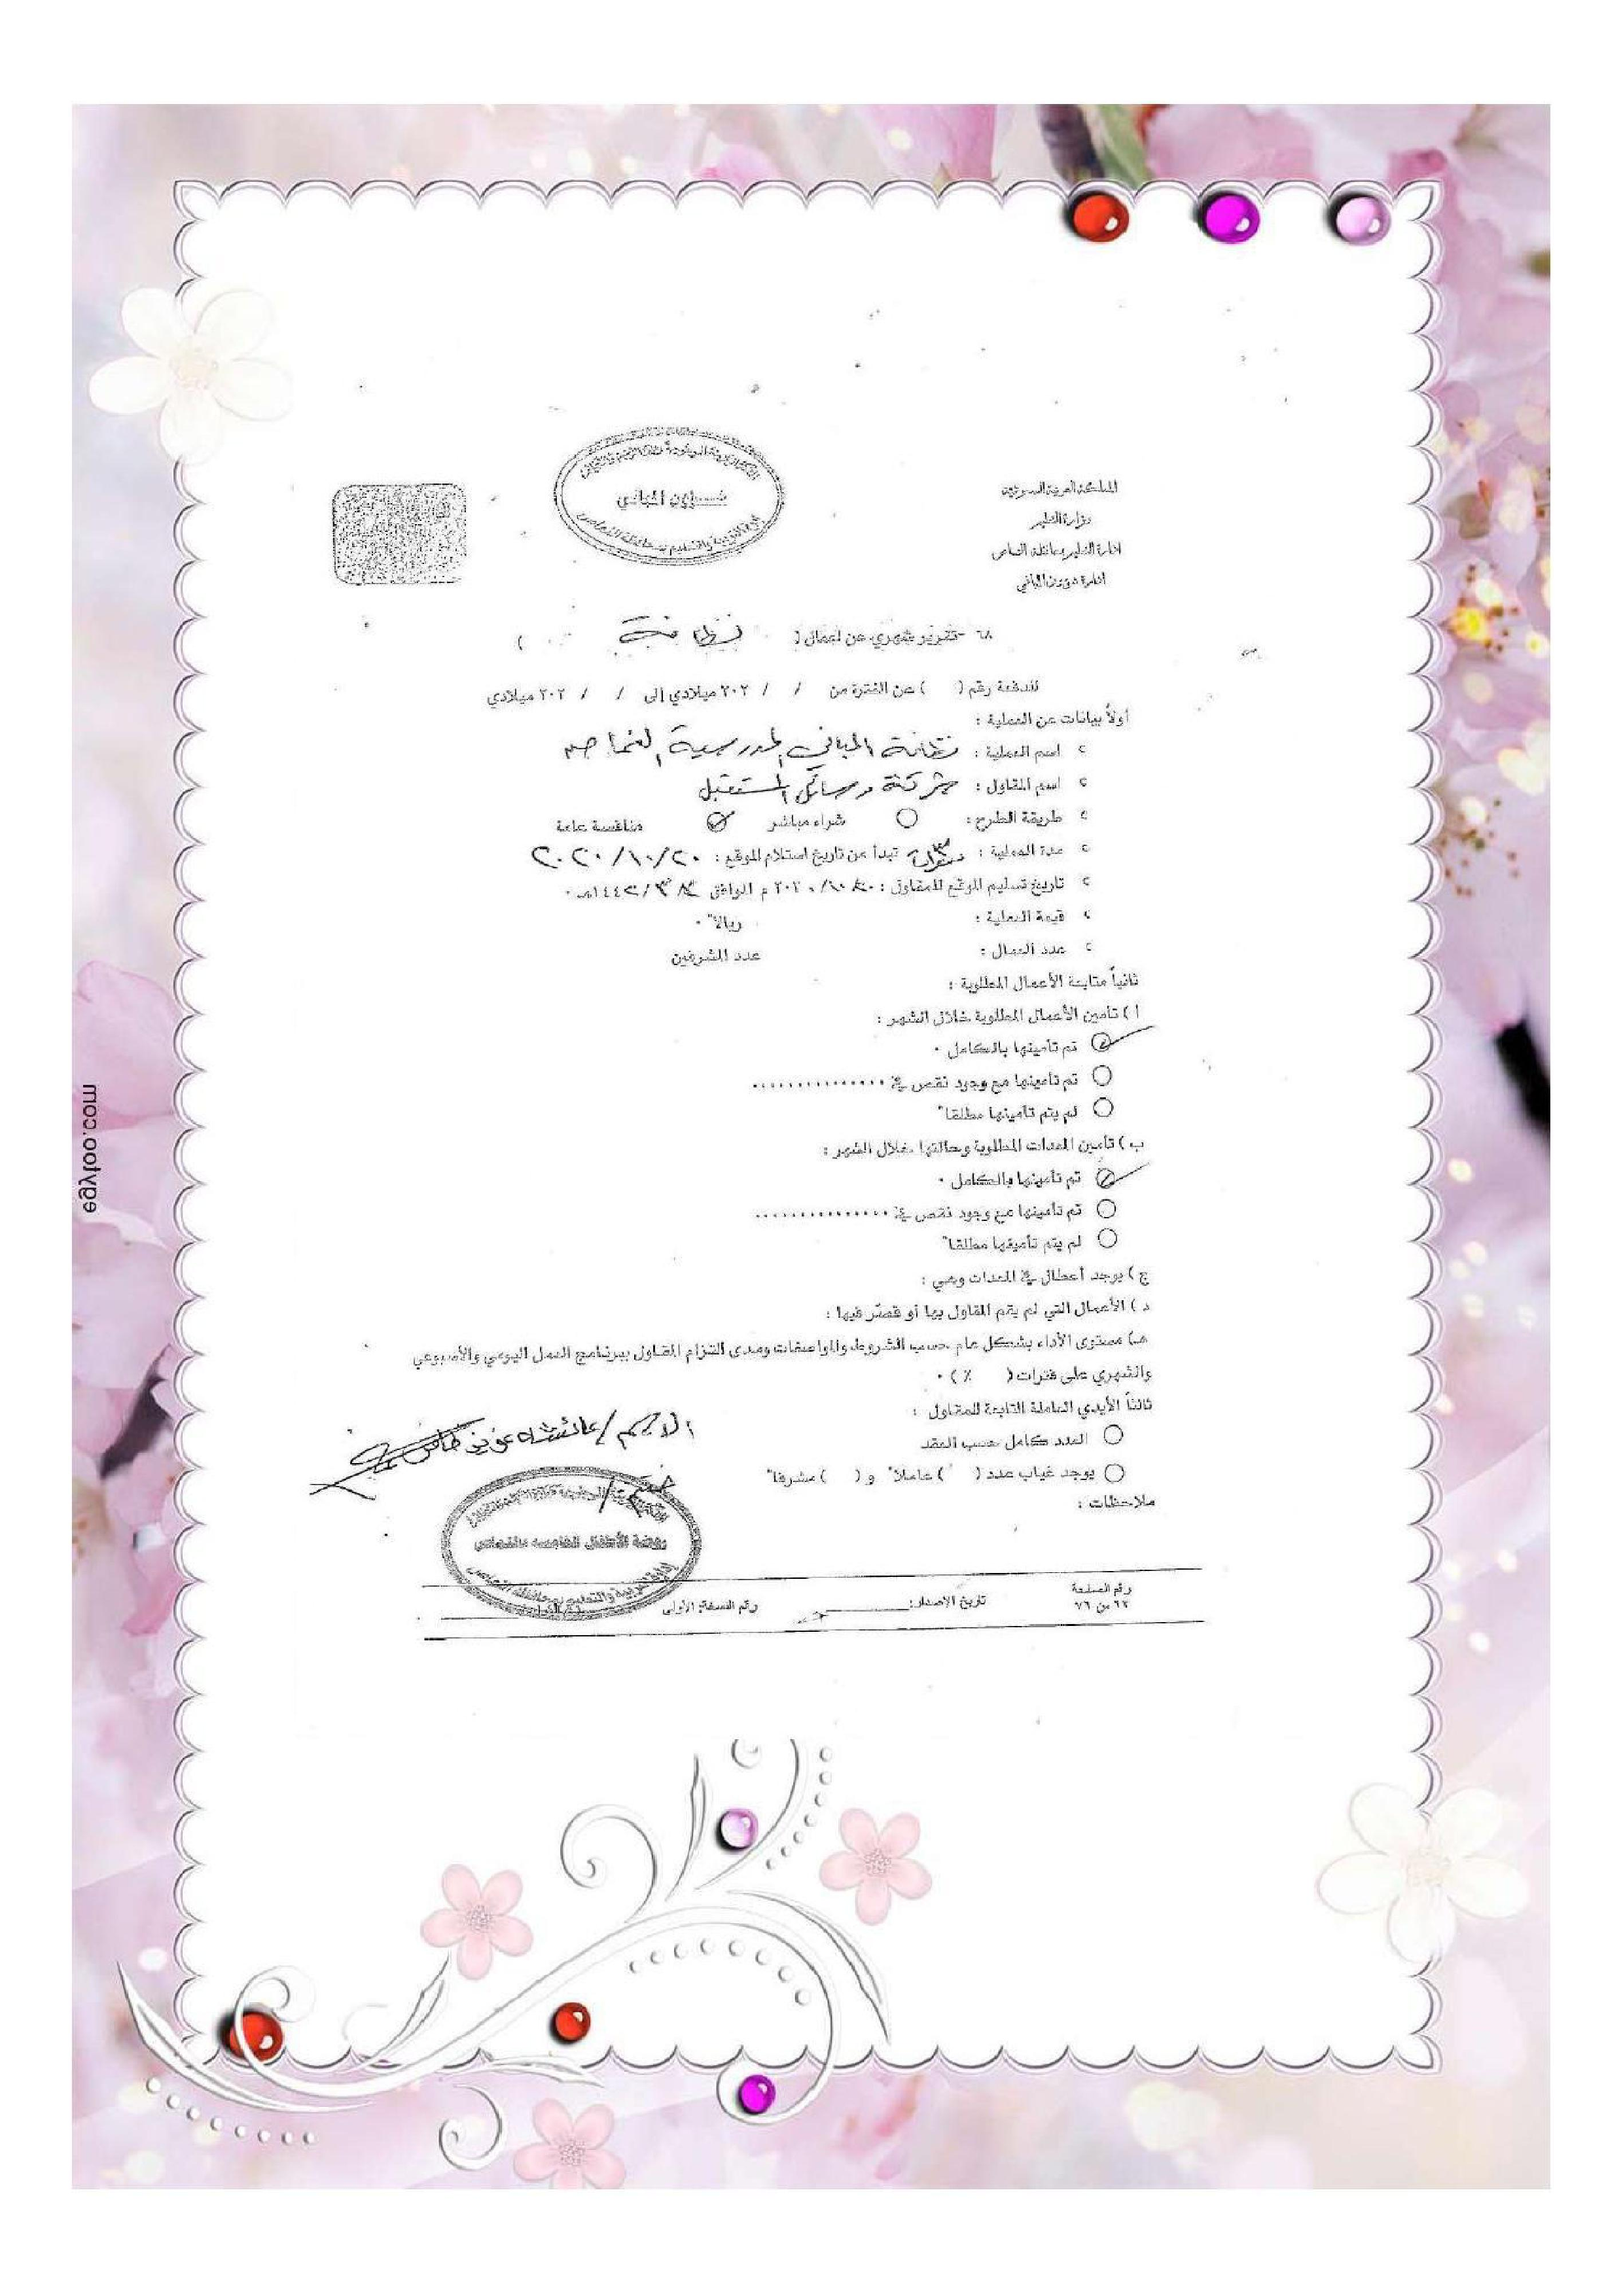 المملكة العربية السعودية
وزارة التعليم
إدارة التعليم بمحافظة النماص
إدارة شؤون المباني
شؤون المباني
٦٨ -تقرير شهري عن أعمال ( نظافة )
للدفعة رقم ( ) عن الفترة من / / ٢٠٢ ميلادي إلى / / ٢٠٢ ميلادي
أولاً بيانات عن العملية :
اسم العملية : نظافة المباني المدرسية بالنماص
اسم المقاول : شركة وسائل المستقبل
طريقة الطرح : شراء مباشر منافسة عامة
مدة العملية : ٣ سنوات تبدأ من تاريخ استلام الموقع : ٢٠٢٠/١٠/٢٠
تاريخ تسليم الموقع للمقاول : ٢٠٢٠/١٠/٢٠ م الموافق /٣/١٤٤٢هـ .
قيمة العملية : ريالاً .
عدد العمال : عدد المشرفين
ثانياً متابعة الأعمال المطلوبة :
أ ) تأمين الأعمال المطلوبة خلال الشهر :
تم تأمينها بالكامل .
تم تأمينها مع وجود نقص في ...............
لم يتم تأمينها مطلقاً
ب ) تأمين المعدات المطلوبة وحالتها خلال الشهر :
تم تأمينها بالكامل .
تم تأمينها مع وجود نقص في ...............
لم يتم تأمينها مطلقاً
ج ) يوجد أعطال في المعدات وهي :
د ) الأعمال التي لم يقم المقاول بها أو قصّر فيها :
هـ) مستوى الأداء بشكل عام حسب الشروط والمواصفات ومدى التزام المقاول ببرنامج العمل اليومي والأسبوعي
والشهري على فترات ( ٪ ) .
ثالثاً الأيدي العاملة التابعة للمقاول :
العدد كامل حسب العقد
يوجد غياب عدد ( ) عاملاً و ( ) مشرفاً
ملاحظات :
الاسم / عائشة
روضة الأطفال الخامسة بالنماص
إدارة التربية والتعليم بمحافظة النماص
رقم الصفحة
٦٢ من ٧٦
تاريخ الإصدار:
رقم النسخة: الأولى
egyfoo.com